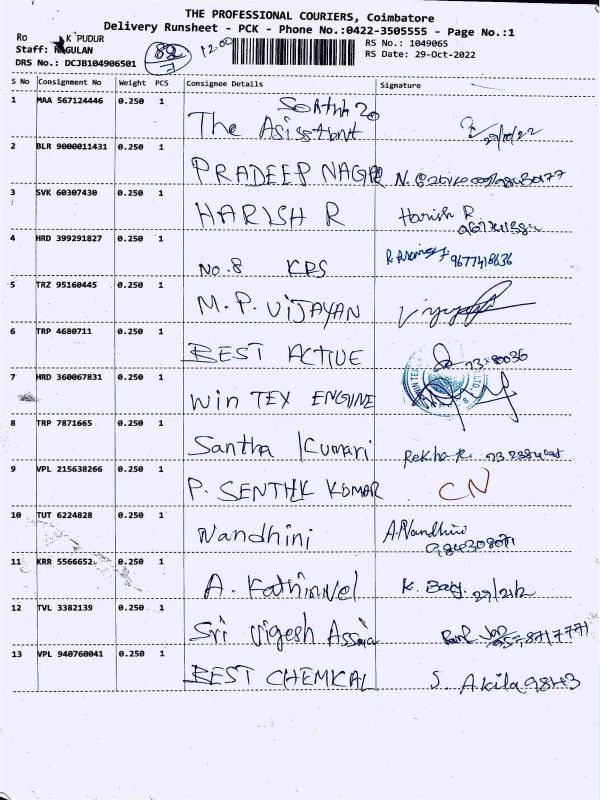 THE PROFESSIONAL COURIERS, Coimbatore
Delivery Runsheet - PCK - Phone No.:0422-3505555 - Page No.:1
Ro K PUDUR
Staff: NAGULAN
DRS No.: DCJB104906501
82
12.00
RS No.: 1049065
RS Date: 29-Oct-2022
S No Consignment No Weight PCS Consignee Details Signature
1 MAA 567124446 0.250 1 The
2 BLR 9000011431 0.250 1 PRADEEP NAGR
3 SVK 60307430 0.250 1 HARISH R Harish R
4 HRD 399291827 0.250 1 No.8 KPS 9677418636
5 TRZ 95160445 0.250 1 M.P. VIJAYAN
6 TRP 4680711 0.250 1 BEST ACTIVE
7 HRD 360067831 0.250 1 Win TEX ENGINE
8 TRP 7871665 0.250 1 Santha Kumari Rekha
9 VPL 215638266 0.250 1 P. SENTHIL KUMAR CN
10 TUT 6224828 0.250 1 Nandhini A.Nandhini
11 KRR 5566652 0.250 1 A. Kathirvel
12 TVL 3382139 0.250 1 Sri Vigesh
13 VPL 940760041 0.250 1 BEST CHEMICAL S. Akila 9843